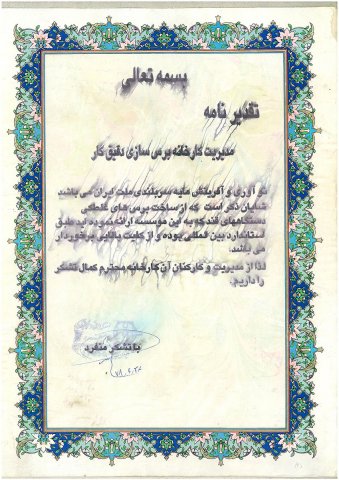 بسمه تعالی
تقدیر نامه
مدیریت کارخانه برس سازی دقیق کار
نو آوری و آفرینش مایه سربلندی ملت ایران می باشد
شایان ذکر است که از ساخت برس های غلطکی
دستگاههای قند که به این موسسه ارائه نموده اید طبق
استاندارد بین المللی بوده و از کیفیت بالایی برخوردار
می باشد.
لذا از مدیریت و کارکنان آن کارخانه محترم کمال تشکر
را داریم.
با تشکر منفرد